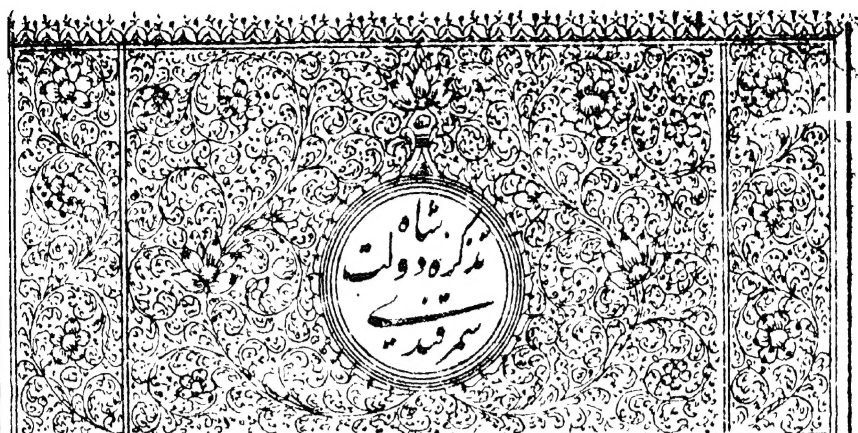 تذکره دولت شاه
سمرقندی